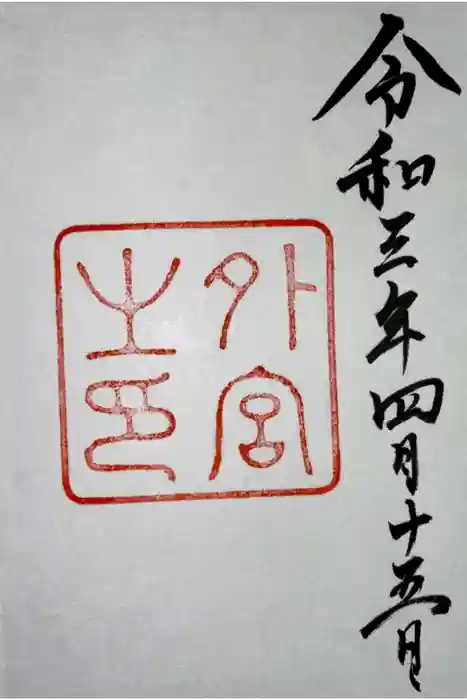 令和三年四月十五日
外宮
之印